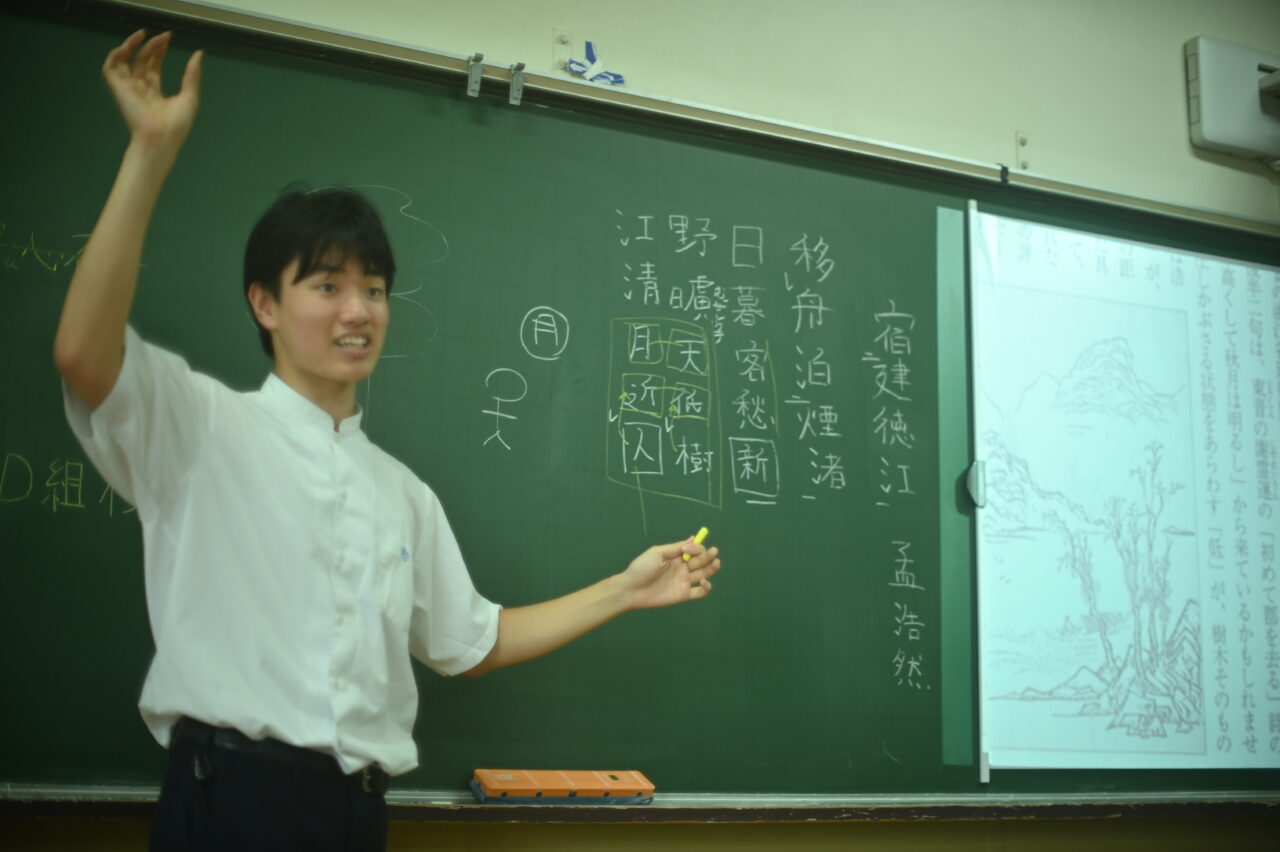 半二句は、東晋の謝霊運の「初めて郡を去る」詩の
高くして秋月は明るし」から来ているかもしれませ
しかぶさる状態をあらわす「低」が、樹木そのもの
は浩
が、
の距
宿建徳江 孟浩然
移舟泊煙渚
日暮客愁新
野曠天低樹
江清月近人
月
D組